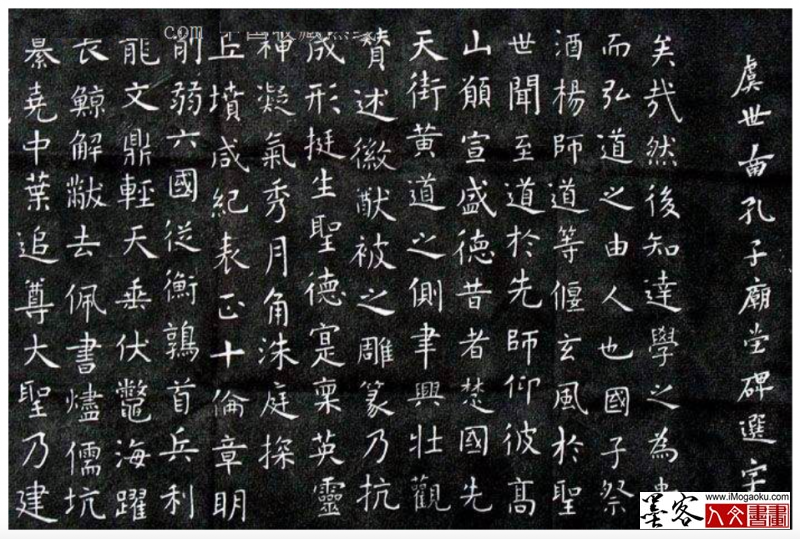 虞世南孔子廟堂碑選字
矣哉然後知達學之為
而弘道之由人也國子祭
酒楊師道等偃玄風於聖
世聞至道於先師仰彼高
山願宣盛德昔者楚國先
天街黃道之側聿興壯觀
賛述徽猷被之雕篆乃抗
成形挺生聖德寔稟英靈
神凝氣秀月角洙庭探
丘墳咸紀表正十倫章明
前弱六國從衡鶉首兵利
龍文鼎輕天垂伏鼈海躍
長鯨解黻去佩書燼儒坑
纂堯中葉追尊大聖乃建
墨客
www.iMogaoku.com
人文書畫